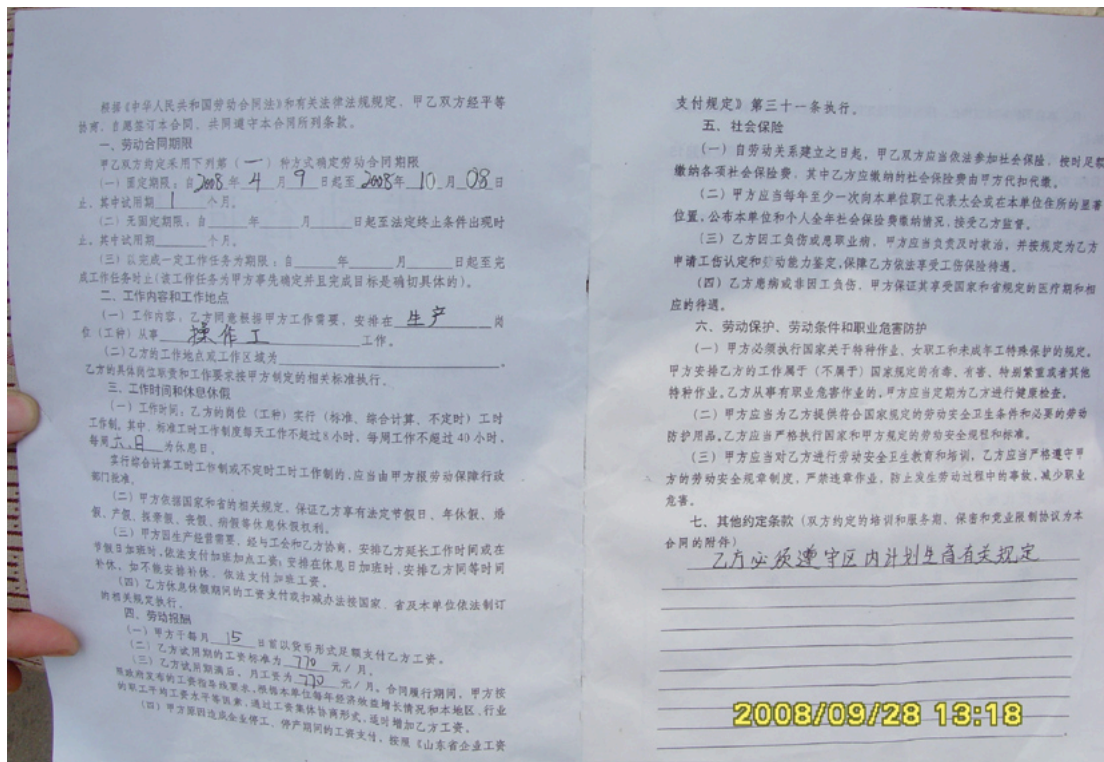 根据《中华人民共和国劳动合同法》和有关法律法规规定，甲乙双方经平等
协商，自愿签订本合同，共同遵守本合同所列条款。
一、劳动合同期限
甲乙双方约定采用下列第（一）种方式确定劳动合同期限
（一）固定期限：自2008年4月9日起至2008年10月08日
止，其中试用期1个月。
（二）无固定期限：自____年____月____日起至法定终止条件出现时
止，其中试用期____个月。
（三）以完成一定工作任务为期限：自____年____月____日起至完
成工作任务时止(该工作任务为甲方事先确定并且完成目标是确切具体的)。
二、工作内容和工作地点
（一）工作内容：乙方同意根据甲方工作需要，安排在 生产 岗
位（工种）从事 操作工 工作。
（二）乙方的工作地点或工作区域为____。
乙方的具体岗位职责和工作要求按甲方制定的相关标准执行。
三、工作时间和休息休假
（一）工作时间：乙方的岗位（工种）实行（标准、综合计算、不定时）工时
工作制，其中，标准工时工作制度每天工作不超过8小时，每周工作不超过40小时，
每周六.日为休息日。
实行综合计算工时工作制或不定时工时工作制的，应当由甲方报劳动保障行政
部门批准。
（二）甲方依据国家和省的相关规定，保证乙方享有法定节假日、年休假、婚
假、产假、探亲假、丧假、病假等休息休假权利。
（三）甲方因生产经营需要，经与工会和乙方协商，安排乙方延长工作时间或在
节假日加班时，依法支付加班加点工资；安排在休息日加班时，安排乙方同等时间
补休，如不能安排补休，依法支付加班工资。
（四）乙方休息休假期间的工资支付或扣减办法按国家、省及本单位依法制订
的相关规定执行。
四、劳动报酬
（一）甲方于每月15日前以货币形式足额支付乙方工资。
（二）乙方试用期的工资标准为770元／月。
（三）乙方试用期满后，月工资为770元／月。合同履行期间，甲方按
照政府发布的工资指导线要求，根据本单位每年经济效益增长情况和本地区、行业
的职工平均工资水平等因素，通过工资集体协商形式，适时增加乙方工资。
（四）甲方原因造成企业停工、停产期间的工资支付，按照《山东省企业工资
支付规定》第三十一条执行。
五、社会保险
（一）自劳动关系建立之日起，甲乙双方应当依法参加社会保险，按时足额
缴纳各项社会保险费，其中乙方应缴纳的社会保险费由甲方代扣代缴。
（二）甲方应当每年至少一次向本单位职工代表大会或在本单位住所的显著
位置，公布本单位和个人全年社会保险费缴纳情况，接受乙方监督。
（三）乙方因工负伤或患职业病，甲方应当负责及时救治，并按规定为乙方
申请工伤认定和劳动能力鉴定，保障乙方依法享受工伤保险待遇。
（四）乙方患病或非因工负伤，甲方保证其享受国家和省规定的医疗期和相
应的待遇。
六、劳动保护、劳动条件和职业危害防护
（一）甲方必须执行国家关于特种作业、女职工和未成年工特殊保护的规定。
甲方安排乙方的工作属于（不属于）国家规定的有毒、有害、特别繁重或者其他
特种作业。乙方从事有职业危害作业的，甲方应当定期为乙方进行健康检查。
（二）甲方应当为乙方提供符合国家规定的劳动安全卫生条件和必要的劳动
防护用品，乙方应当严格执行国家和甲方规定的劳动安全规程和标准。
（三）甲方应当对乙方进行劳动安全卫生教育和培训，乙方应当严格遵守甲
方的劳动安全规章制度，严禁违章作业，防止发生劳动过程中的事故，减少职业
危害。
七、其他约定条款（双方约定的培训和服务期、保密和竞业限制协议为本
合同的附件）
乙方必须遵守区内计划生育有关规定
2008/09/28 13:18